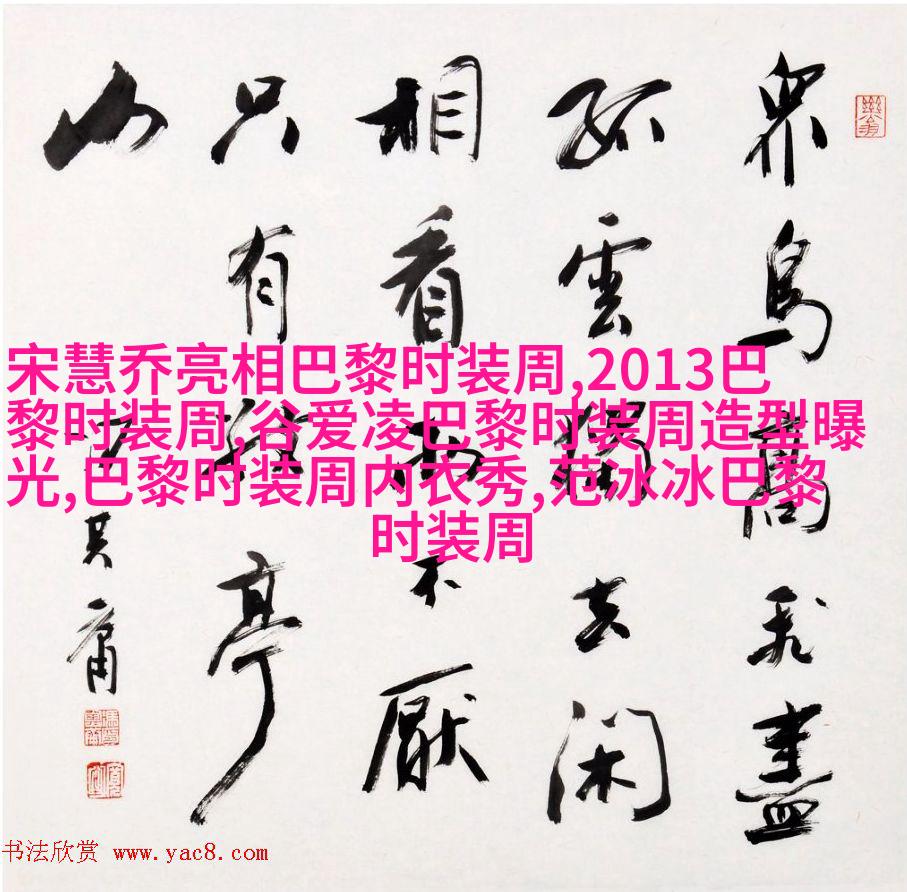 眾鳥高飛盡
孤雲獨去閑
相看兩不厭
只有敬亭
山
其庸
宋慧乔亮相巴黎时装周,2013巴
黎时装周,谷爱凌巴黎时装周造型曝
光,巴黎时装周内衣秀,范冰冰巴黎
时装周
书法欣赏 www.yac8.com